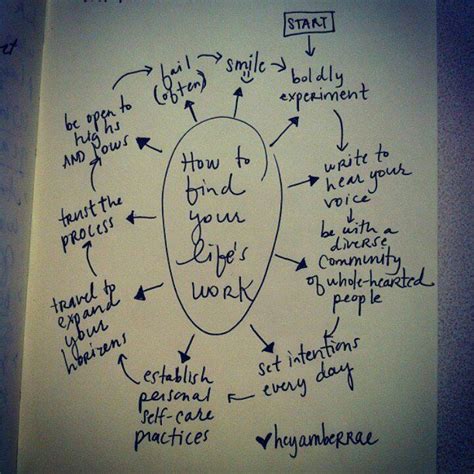 START
boldly
experiment
write to
hear your
voice
be with a
diverse
community
of whole-hearted
people
set intentions
every day
establish
personal
self-care
practices
travel to
expand
your
horizens
trust the
process
be open to
highs
AND lows
fail
(often)
smile
How to
find
your
life's
work
♥heyamberrae